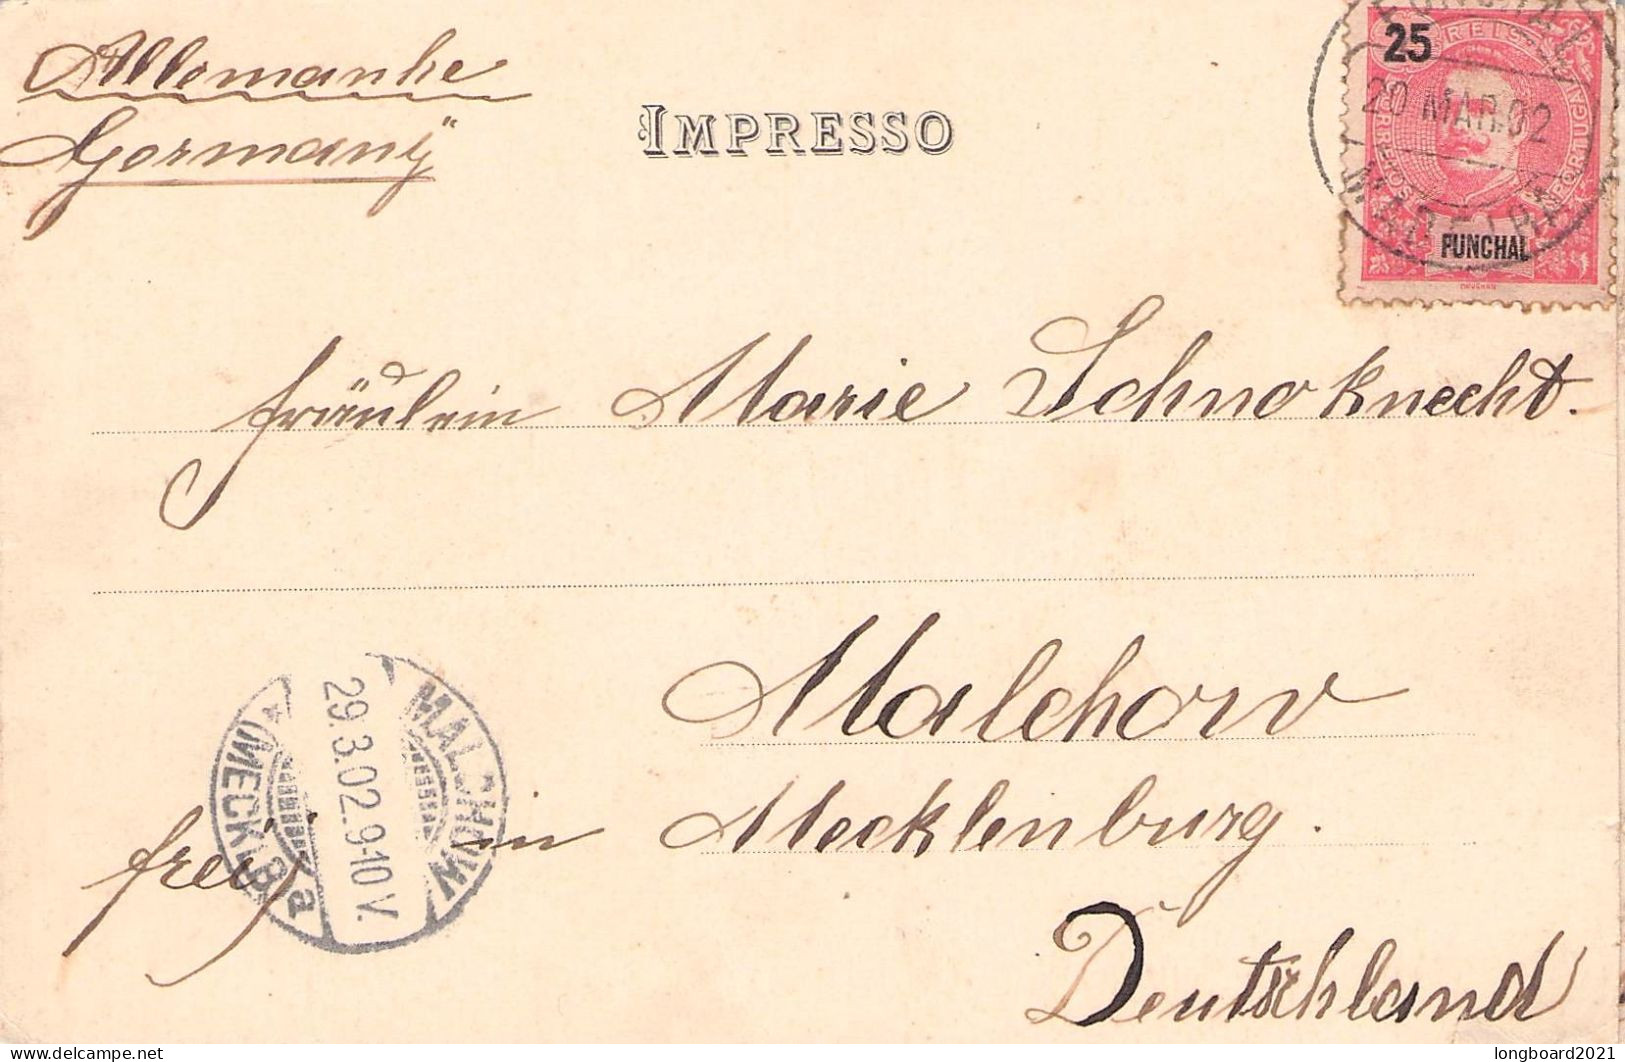 Allemanhe
Germany"
IMPRESSO
25
REIS
PORTUGAL
CORREIOS
FUNCHAL
FUNCHAL
20 MAR.02
MADEIRA
Fräulein Marie Schnoknecht.
Malchow
in Mecklenburg.
frei
Deutschland
MALCHOW
29.3.02.9-10 V.
* (MECKLB) a
delcampe.net
longboard2021